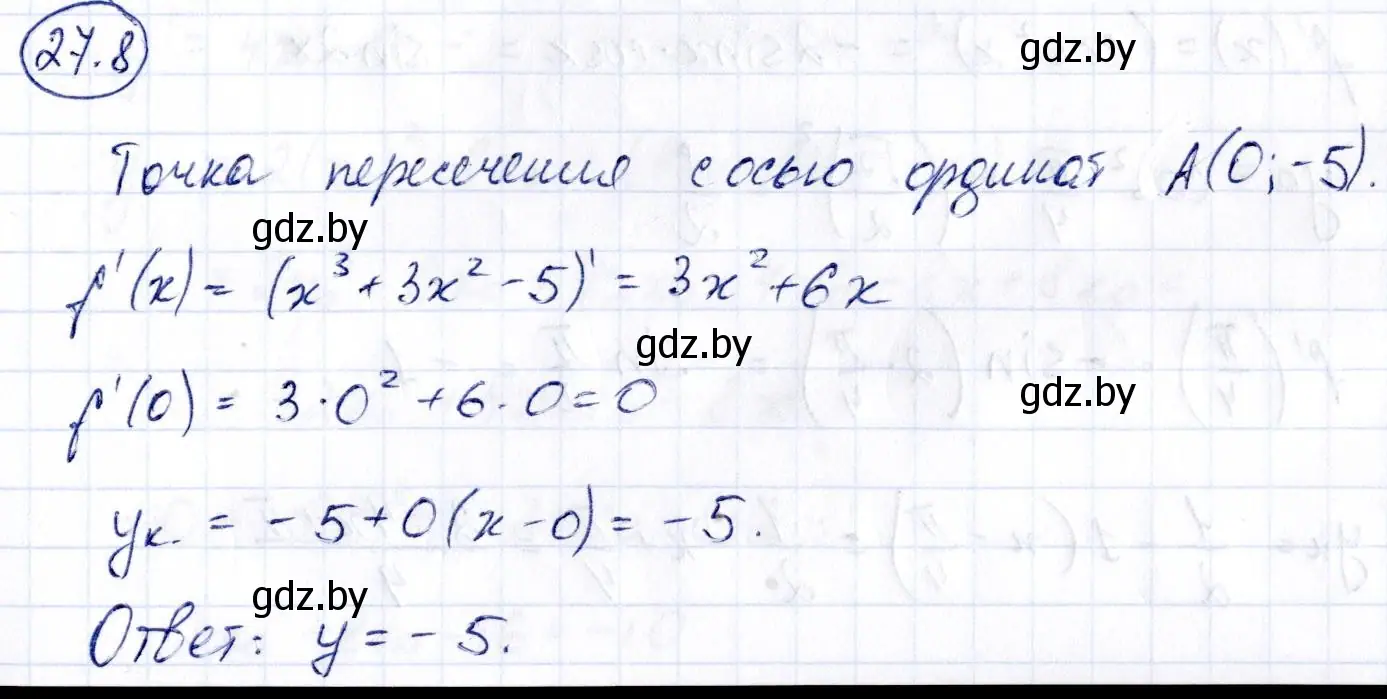 27.8
gdz.by
Точка пересечения с осью ординат A(0; -5).
gdz.by
f'(x) = (x³ + 3x² - 5)' = 3x² + 6x
gdz.by
f'(0) = 3·0² + 6·0 = 0
gdz.by
yк. = -5 + 0(x - 0) = -5.
gdz.by
Ответ: y = -5.